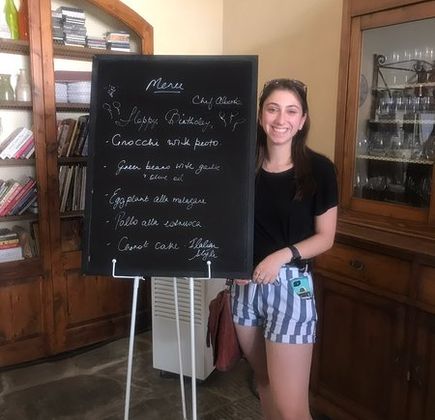 Menu
Happy Birthday,
- Gnocchi with pesto
- Green beans with garlic
+ olive oil
- Eggplant alla
- Pollo alla
- Carrot cake Italian
Style